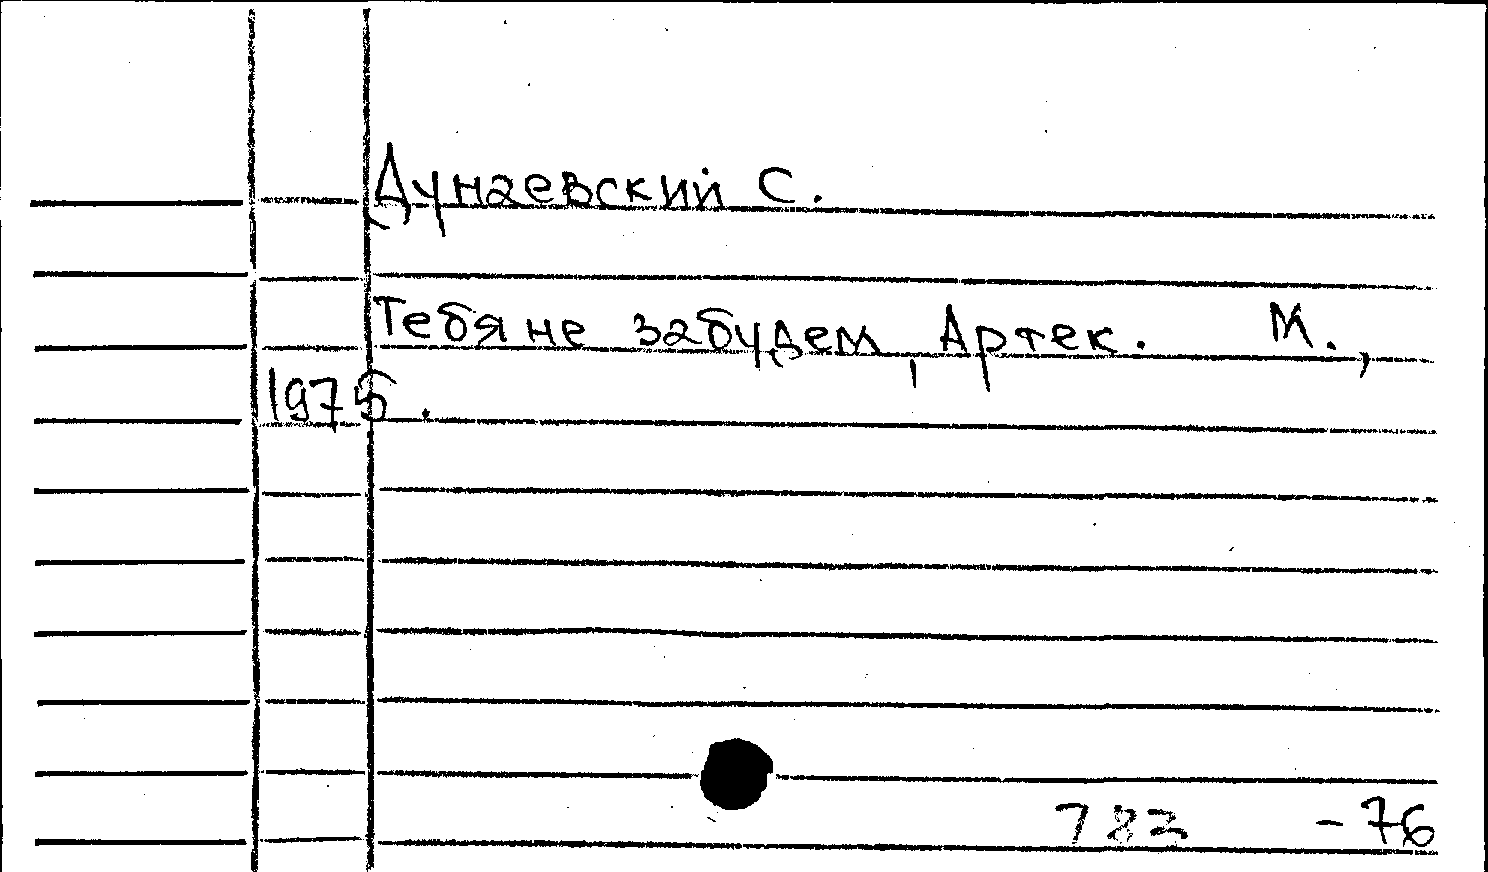 Дунаевский С.
Тебя не забудем, Артек. М.,
1975.
783 -76